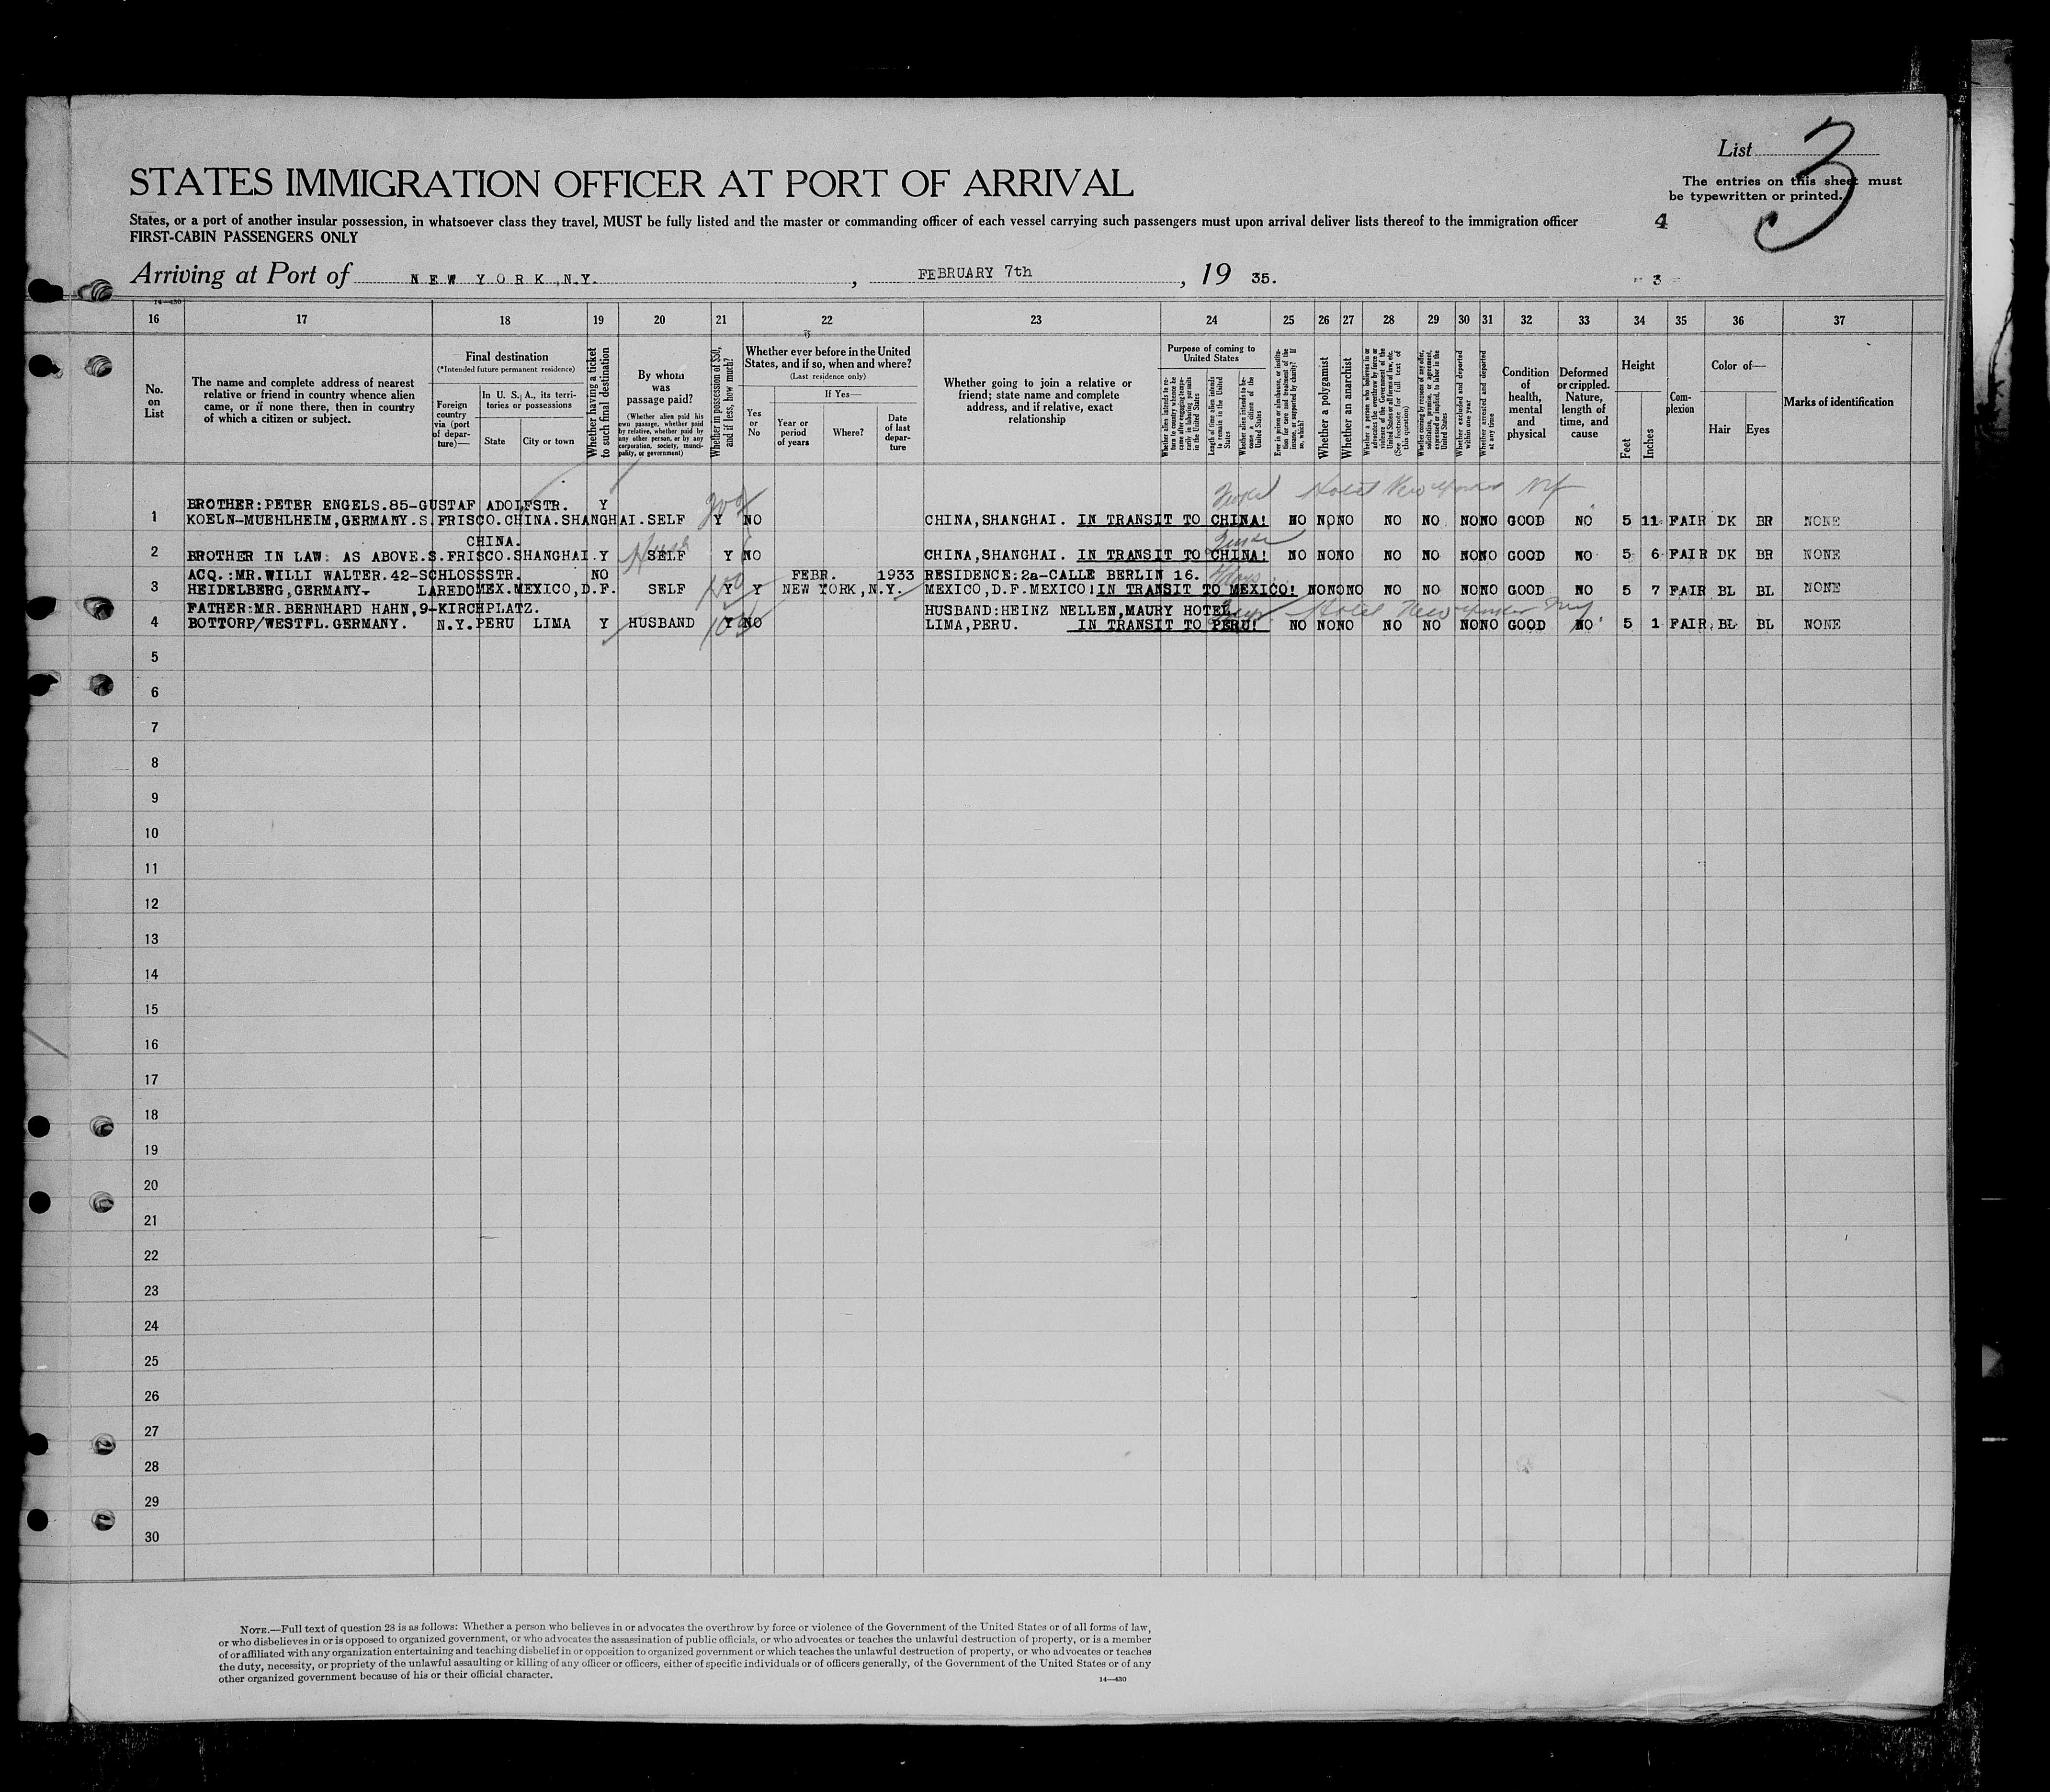 List 3
STATES IMMIGRATION OFFICER AT PORT OF ARRIVAL
The entries on this sheet must
be typewritten or printed.
States, or a port of another insular possession, in whatsoever class they travel, MUST be fully listed and the master or commanding officer of each vessel carrying such passengers must upon arrival deliver lists thereof to the immigration officer
4
FIRST-CABIN PASSENGERS ONLY
Arriving at Port of NEW YORK,N.Y. , FEBRUARY 7th , 19 35.
- 3 -
14—430
16 17 18 19 20 21 22 23 24 25 26 27 28 29 30 31 32 33 34 35 36 37
No. on List
The name and complete address of nearest relative or friend in country whence alien came, or if none there, then in country of which a citizen or subject.
Final destination
(*Intended future permanent residence)
Foreign country via (port of departure)—
In U. S. A., its territories or possessions
State
City or town
Whether having a ticket to such final destination
By whom was passage paid?
(Whether alien paid his own passage, whether paid by relative, whether paid by any other person, or by any corporation, society, municipality, or government)
Whether in possession of $50, and if less, how much?
Whether ever before in the United States, and if so, when and where?
(Last residence only)
Yes or No
If Yes—
Year or period of years
Where?
Date of last departure
Whether going to join a relative or friend; state name and complete address, and if relative, exact relationship
Purpose of coming to United States
Whether alien intends to return to country whence he came after engaging temporarily in laboring pursuits in the United States
Length of time alien intends to remain in the United States
Whether alien intends to become a citizen of the United States
Ever in prison or almshouse, or institution for care and treatment of the insane, or supported by charity? If so, which?
Whether a polygamist
Whether an anarchist
Whether a person who believes in or advocates the overthrow by force or violence of the Government of the United States or all forms of law, etc. (See footnote for full text of this question)
Whether coming by reason of any offer, solicitation, promise, or agreement, expressed or implied, to labor in the United States
Whether excluded and deported within one year
Whether arrested and deported at any time
Condition of health, mental and physical
Deformed or crippled. Nature, length of time, and cause
Height
Feet
Inches
Complexion
Color of—
Hair
Eyes
Marks of identification
Hotel New Yorker NY
BROTHER:PETER ENGELS.85-GUSTAF ADOLFSTR. Y 200
1 KOELN-MUEHLHEIM,GERMANY.S.FRISCO.CHINA.SHANGHAI.SELF Y NO CHINA,SHANGHAI. IN TRANSIT TO CHINA! NO NO NO NO NO NO NO GOOD NO 5 11 FAIR DK BR NONE
CHINA.
2 BROTHER IN LAW: AS ABOVE.S.FRISCO.SHANGHAI.Y SELF Y NO CHINA,SHANGHAI. IN TRANSIT TO CHINA! NO NO NO NO NO NO NO GOOD NO 5 6 FAIR DK BR NONE
ACQ.:MR.WILLI WALTER.42-SCHLOSSSTR. NO FEBR. 1933 RESIDENCE:2a-CALLE BERLIN 16.
3 HEIDELBERG,GERMANY- LAREDO MEX.MEXICO,D.F. SELF Y Y NEW YORK,N.Y. MEXICO,D.F.MEXICO!IN TRANSIT TO MEXICO! NO NO NO NO NO NO NO GOOD NO 5 7 FAIR BL BL NONE
FATHER:MR.BERNHARD HAHN,9-KIRCHPLATZ. HUSBAND:HEINZ NELLEN,MAURY HOTEL, Hotel New Yorker NY
4 BOTTORP/WESTFL.GERMANY. N.Y.PERU LIMA Y HUSBAND Y NO LIMA,PERU. IN TRANSIT TO PERU! NO NO NO NO NO NO NO GOOD NO 5 1 FAIR BL BL NONE
5
6
7
8
9
10
11
12
13
14
15
16
17
18
19
20
21
22
23
24
25
26
27
28
29
30
NOTE.—Full text of question 28 is as follows: Whether a person who believes in or advocates the overthrow by force or violence of the Government of the United States or of all forms of law,
or who disbelieves in or is opposed to organized government, or who advocates the assassination of public officials, or who advocates or teaches the unlawful destruction of property, or is a member
of or affiliated with any organization entertaining and teaching disbelief in or opposition to organized government or which teaches the unlawful destruction of property, or who advocates or teaches
the duty, necessity, or propriety of the unlawful assaulting or killing of any officer or officers, either of specific individuals or of officers generally, of the Government of the United States or of any
other organized government because of his or their official character.
14—430